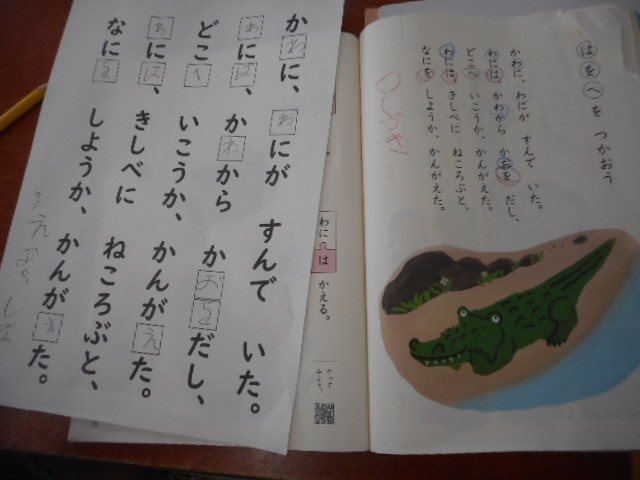 はをへを つかおう
かわに、わにが すんで いた。
わには、かわから かおを だし、
どこへ いこうか、かんがえた。
わには、きしべに ねころぶと、
なにを しようか、かんがえた。
わに は かえる。
かわに、 わにが すんで いた。
わには、 かわから かおを だし、
どこへ いこうか、 かんがえた。
わには、 きしべに ねころぶと、
なにを しようか、 かんがえた。